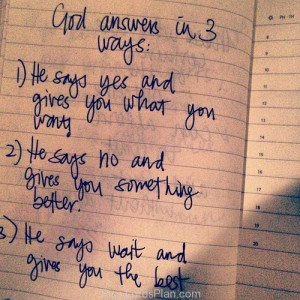 God answers in 3
ways:
1) He says yes and
gives you what you
want!
2) He says no and
gives you something
better.
3) He says wait and
gives you the best